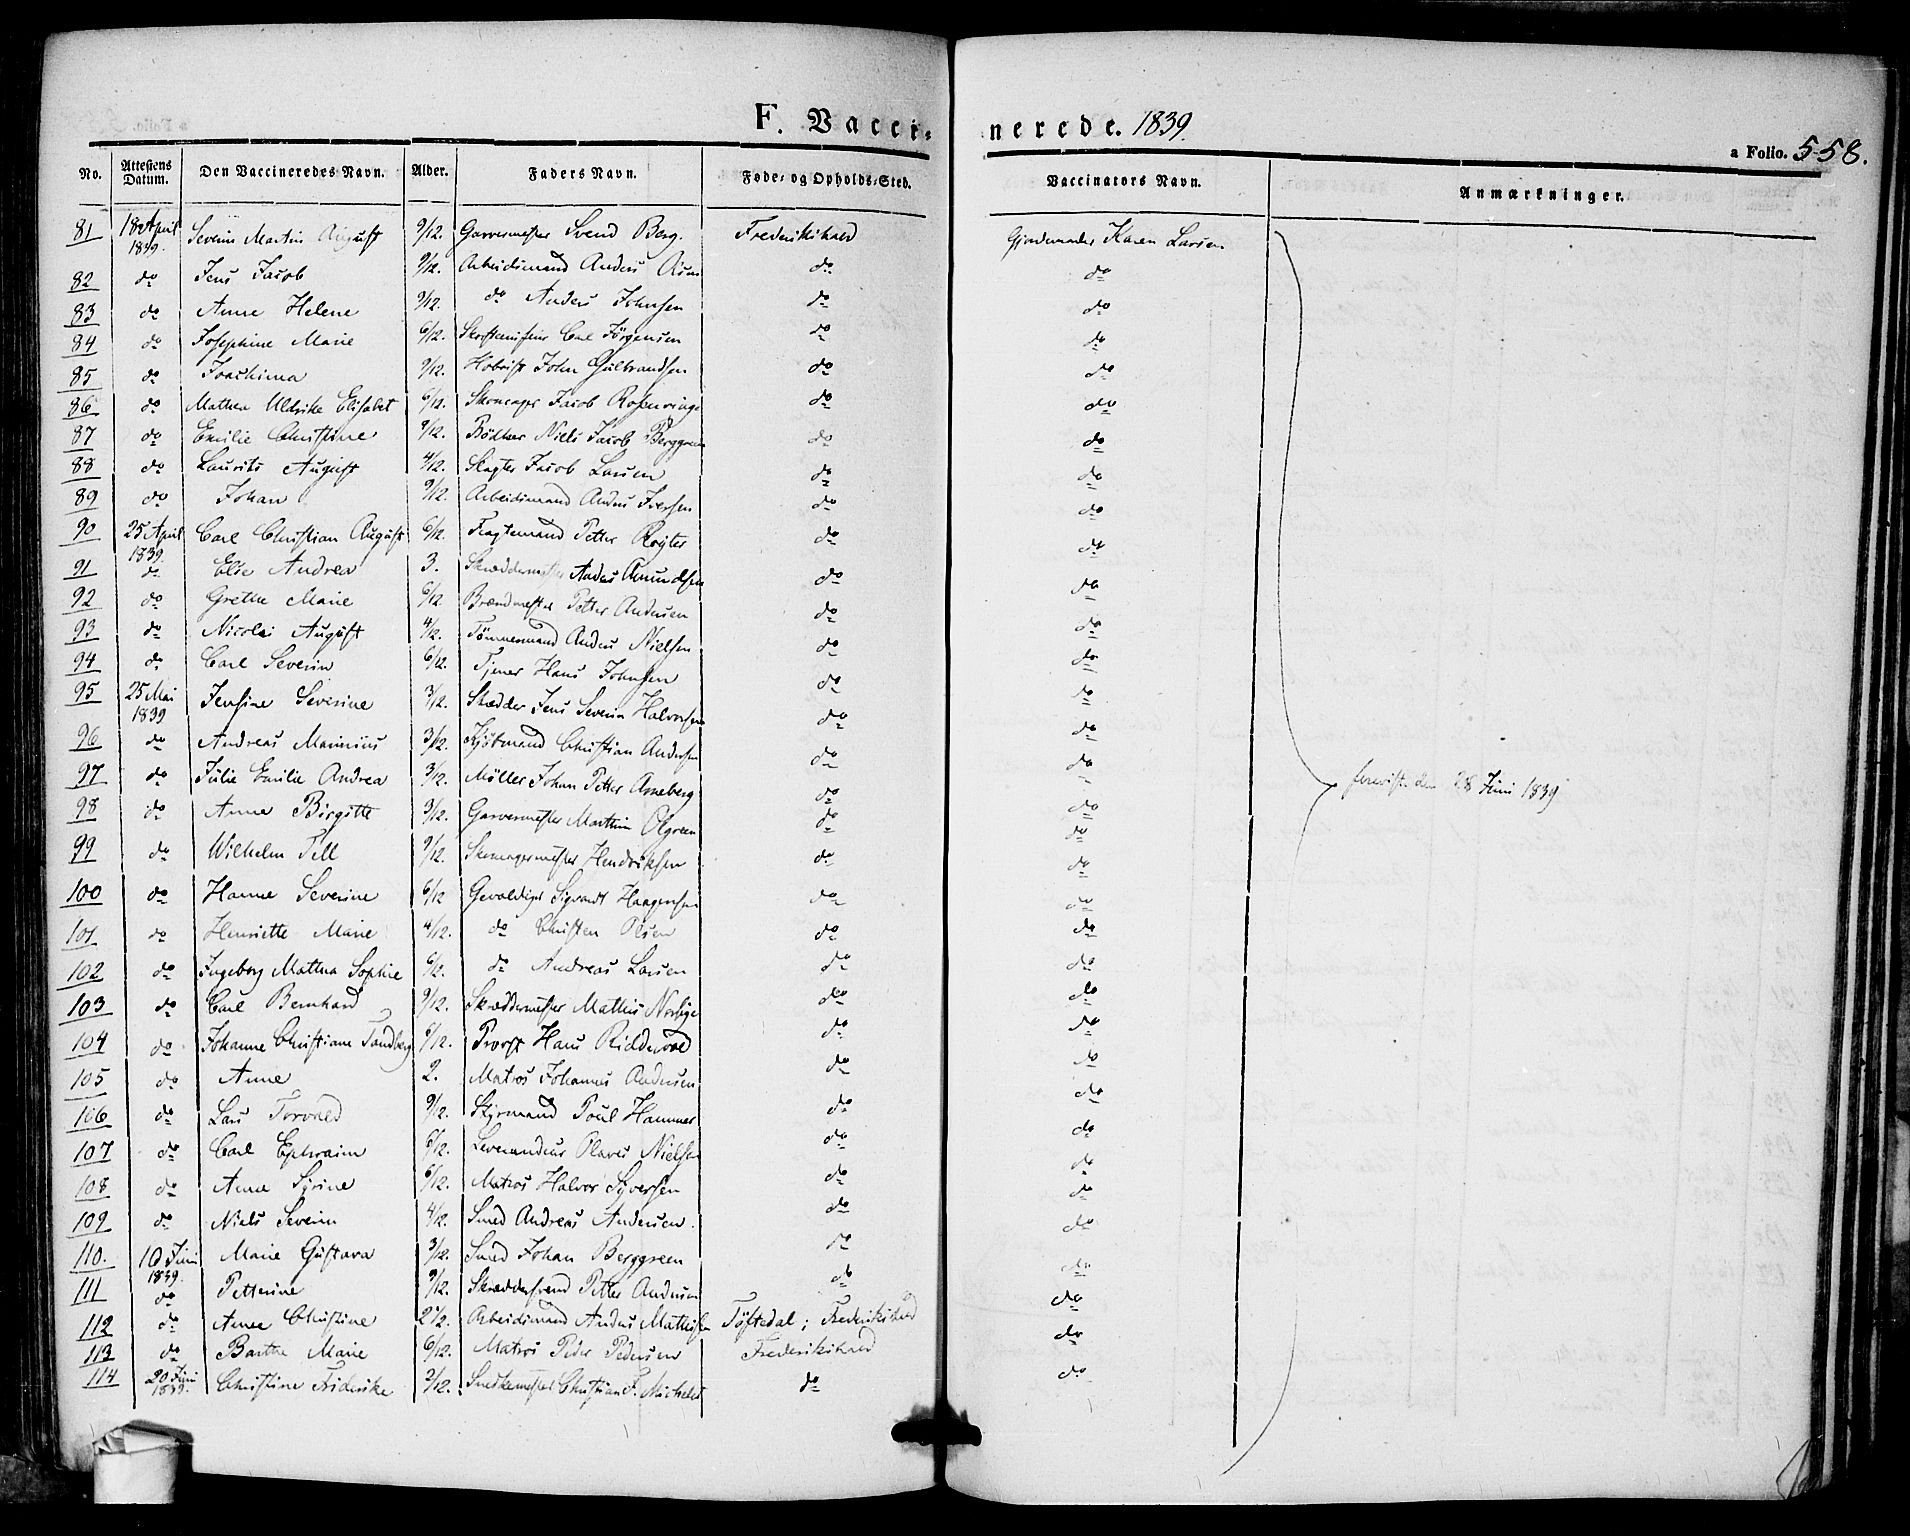 F. Vacci-nerede. 1839.
a Folio. 558.
No. Attestens Datum. Den Vaccineredes Navn. Alder. Faders Navn. Føde- og Opholds-Sted. Vaccinators Navn. Anmærkninger.
81 18 April 1839. Severin Martin August 9/12. Garvermester Svend Berg. Frederikshald Gjordemoder Karen Larsen
82 do Jens Jacob 9/12. Arbeidsmand Anders do do
83 do Anne Helene 9/12. do Anders Johnsen do do
84 do Josephine Marie 6/12. Carl Jörgensen do do
85 do Joachima 9/12. John Gulbrandsen do do
86 do Mathea Uldrike Elisabet 6/12. Skomager Jacob Rosenvinge do do
87 do Emilie Christine 9/12. Bödker Niels Jacob Berggreen do do
88 do Laurits August 4/12. Slagter Jacob Larsen do do
89 do Johan 9/12. Arbeidsmand Anders Iversen do do
90 25 April 1839. Carl Christian August 6/12. Fragtemand Petter do do
91 do Else Andrea 3. Skræddermester Anders Amundsen do do
92 do Grethe Marie 6/12 Brændmester Petter Andersen do do
93 do Nicolai August 4/12. Tömmermand Anders Nielsen do do
94 do Carl Severin 6/12. Tjener Hans Johnsen do do
95 25 Mai 1839 Jensine Severine 3/12. Skrædder Jens Severin Halvorsen do do
96 do Andreas Marinius 3/12. Kjöbmand Christian Andersen do do
97 do Julie Emilie Andrea 3/12. Möller Johan Petter Arneberg do do
98 do Anne Birgitte 3/12. Garvermester Marthin Olgreen do do
ferevist den 28 Juni 1839
99 do Wilhelm Tell 9/12. Skomagermester Hendriksen do do
100 do Hanne Severine 6/12 Gevaldiger Sigvardt Haagensen do do
101 do Henriette Marie 4/12. do Christen Olsen do do
102 do Ingeborg Mathea Sophie 6/12. do Andreas Larsen do do
103 do Carl Bernhard 9/12. Skræddermester Mathis do do
104 do Johanne Christiane Sandberg /12. Provst Hans Riddervold do do
105 do Anne 2. Matros Johannes Andersen do do
106 do Lars Torvald 9/12. Styrmand Poul Hammer do do
107 do Carl Ephraim 6/12. Olaves Nielsen do do
108 do Anne Syrine 6/12. Matros Halvor Syversen do do
109 do Niels Severin 4/12. Smed Andreas Andersen. do do
110. 10 Juni 1839. Marie Gustava 3/12. Smed Johan Berggreen do do
111 do Petterine 9/12. Skræddersvend Petter Andersen do do
112 do Anne Christine 2 1/2. Arbeidsmand Anders Mathisen Töftedal; Frederikshald do
113 do Barthe Marie 6/12. Matros Peder Pedersen Frederikshald do
114 20 Juni 1839. Christine Friderike 2/12. Snedkermester Christian F. Michelet do do